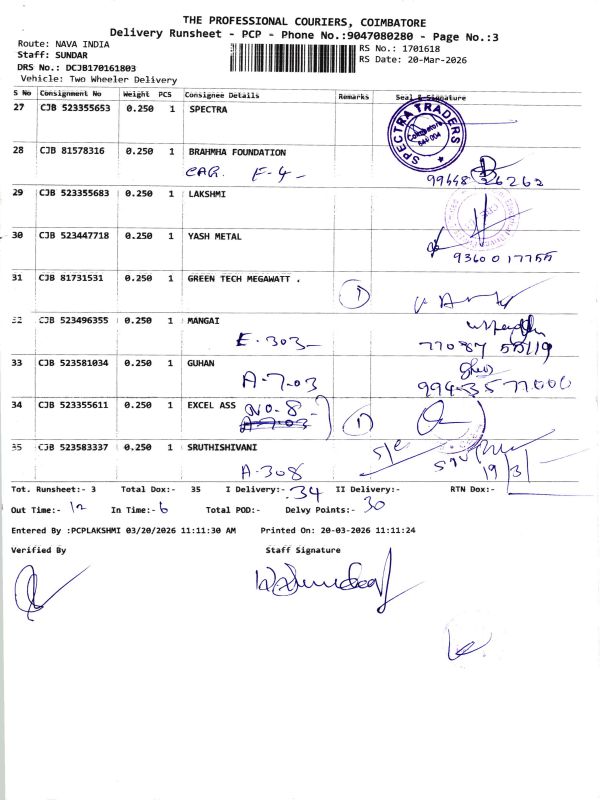 THE PROFESSIONAL COURIERS, COIMBATORE
Delivery Runsheet - PCP - Phone No.:9047080280 - Page No.:3
Route: NAVA INDIA
RS No.: 1701618
Staff: SUNDAR
RS Date: 20-Mar-2026
DRS No.: DCJB170161803
Vehicle: Two Wheeler Delivery
S No Consignment No Weight PCS Consignee Details Remarks Seal & Signature
27 CJB 523355653 0.250 1 SPECTRA
SPECTRA TRADERS
Coimbatore
641 004
28 CJB 81578316 0.250 1 BRAHMHA FOUNDATION
CAR. F-4-
99448 26262
29 CJB 523355683 0.250 1 LAKSHMI
30 CJB 523447718 0.250 1 YASH METAL
93600 17755
31 CJB 81731531 0.250 1 GREEN TECH MEGAWATT . 1
32 CJB 523496355 0.250 1 MANGAI
E-303-
77087 55119
33 CJB 523581034 0.250 1 GUHAN
A-7-03
34 CJB 523355611 0.250 1 EXCEL ASS NO-8- 1
A-7-03
35 CJB 523583337 0.250 1 SRUTHISHIVANI
A-308
19/3/
Tot. Runsheet:- 3 Total Dox:- 35 I Delivery:- 34 II Delivery:- RTN Dox:-
Out Time:- 12 In Time:- 6 Total POD:- Delvy Points:- 30
Entered By :PCPLAKSHMI 03/20/2026 11:11:30 AM Printed On: 20-03-2026 11:11:24
Verified By Staff Signature